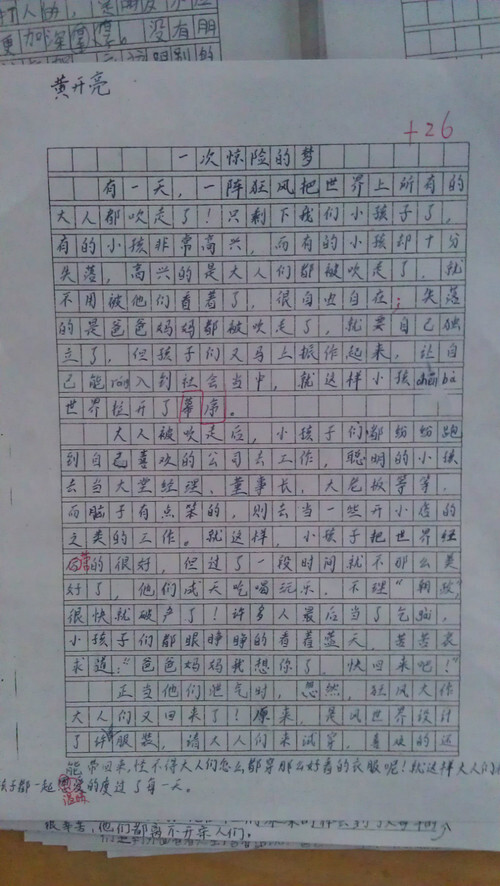 更加深厚。没有朋
黄开亮
+26
一次惊险的梦
有一天,一阵狂风把世界上所有的
大人都吹走了!只剩下我们小孩子了,
有的小孩非常高兴,而有的小孩却十分
失落,高兴的是大人们都被吹走了,就
不用被他们看着了,很自由自在;失落
的是爸爸妈妈都被吹走了,就要自己独
立了,但孩子们又马上振作起来,让自
己能róng入到社会当中,就这样小孩chēn bà
世界拉开了幕序。
大人被吹走后,小孩子们都纷纷跑
到自己喜欢的公司去工作,聪明的小孩
去当大堂经理、董事长、大老板等等,
而脑子有点笨的,则去当一些开小店的
之类的工作。就这样,小孩子把世界经
营的很好,但过了一段时间就不那么美
好了,他们成天吃喝玩乐,不理“朝政”,
很快就破产了!许多人最后当了乞丐,
小孩子们都眼睁睁的看着蓝天,苦苦哀
求道:“爸爸妈妈我想你了,快回来吧!”
正当他们泄气时,忽然,狂风大作
大人们又回来了!原来,是风世界设计
了许服装,请大人们来试穿,喜欢的还
能带回来,怪不得大人们怎么都穿那么好看的衣服呢!就这样大人们
孩子都一起恩爱的度过了每一天。
很辛苦,他们都离不开亲人们。